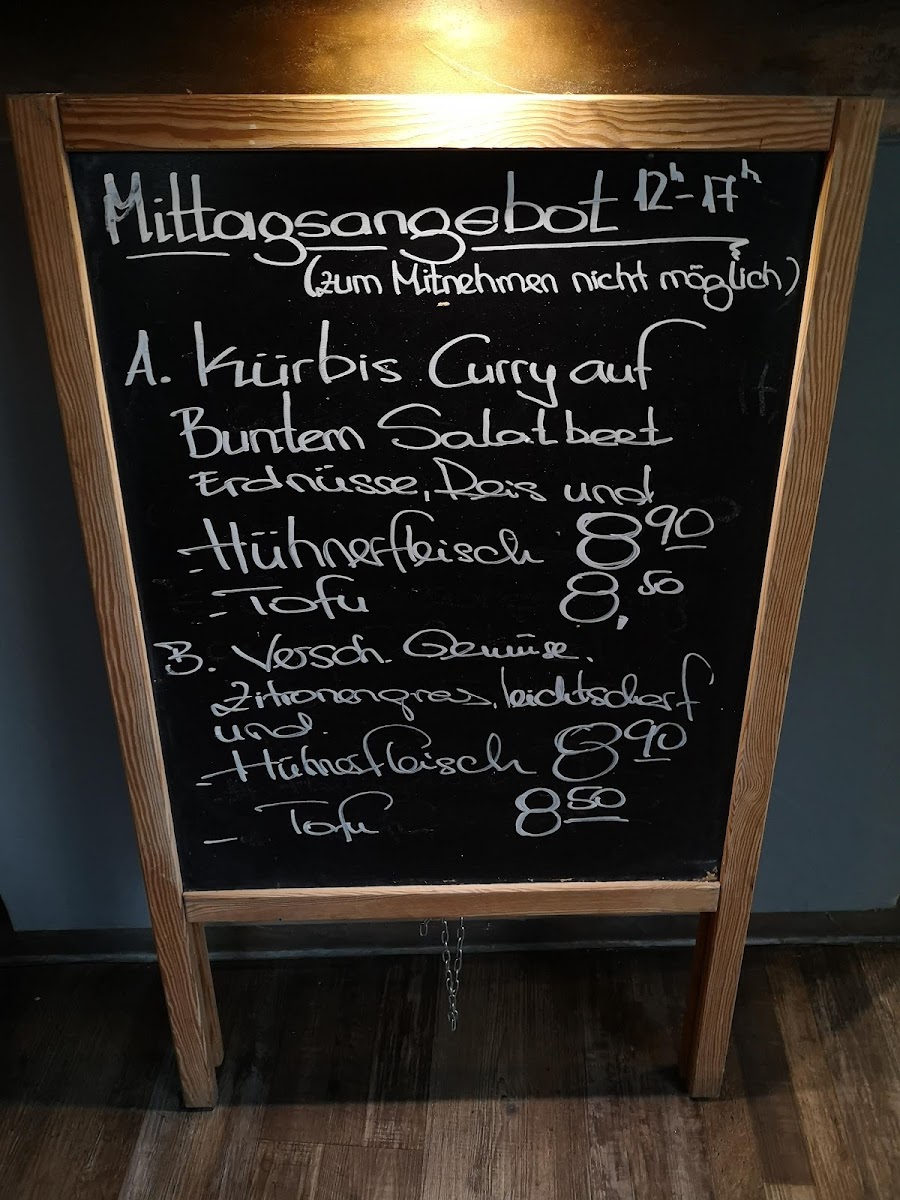 Mittagsangebot 12h-17h
(zum Mitnehmen nicht möglich)
A. Kürbis Curry auf
Buntem Salatbeet
Erdnüsse, Reis und
- Hühnerfleisch 8 90
- Tofu 8,50
B. Versch. Gemüse.
Zitronengras, leichtscharf
und.
- Hühnerfleisch 8 90
- Tofu 8 50